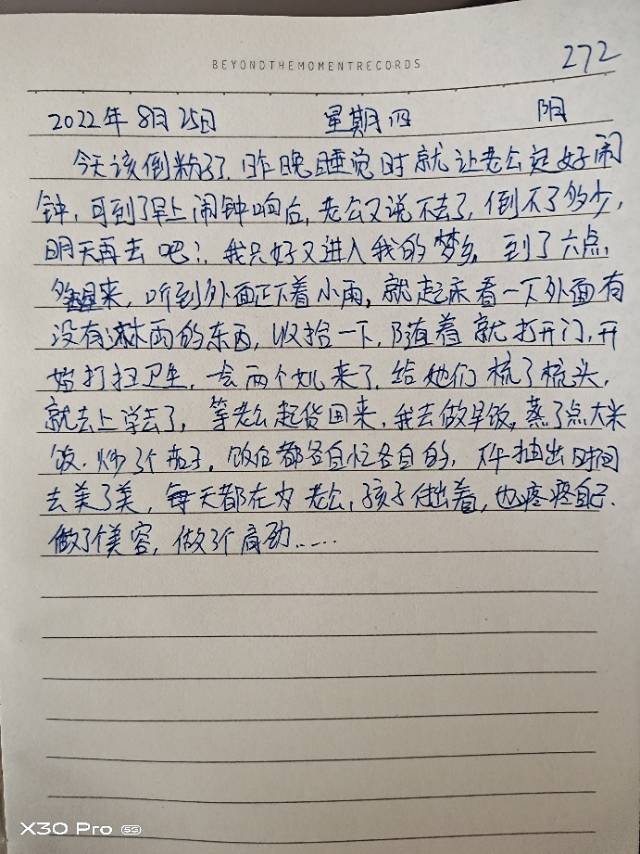 BEYONDTHEMOMENTRECORDS
272
2022年8月25日 星期四 阴
今天该倒粉了,昨晚睡觉时就让老公定好闹
钟,可到了早上闹钟响后,老公又说不去了,倒不了多少,
明天再去吧!我只好又进入我的梦乡,到了六点,
醒来,听到外面正下着小雨,就起床看一下外面有
没有淋雨的东西,收拾一下,随着就打开门,开
始打扫卫生,一会两个女儿来了,给她们梳了梳头,
就去上学去了,等老公起货回来,我去做早饭,蒸了点大米
饭,炒了个茄子,饭后都各自忙各自的,下午抽出时间
去美了美,每天都在为老公,孩子付出着,也疼疼自己.
做了个美容,做了个肩颈……
X30 Pro 5G